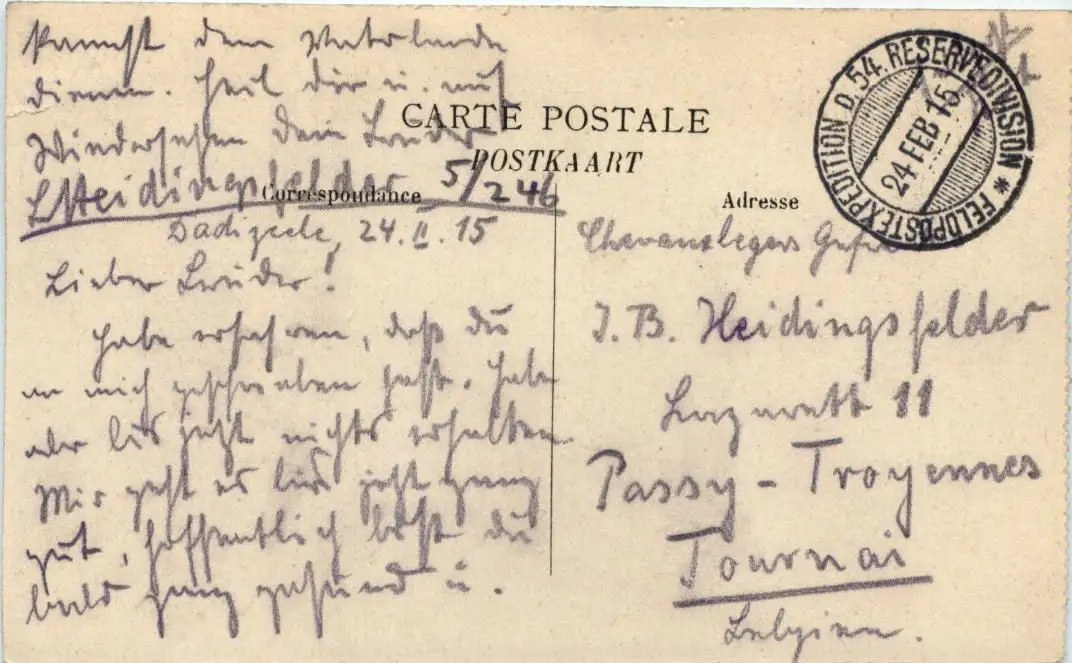 Dadizeele, 24.II.15
Lieber Bruder!
Habe erfahren, daß du
an mich geschrieben hast. Habe
aber bis jetzt nichts erhalten.
Mir geht es bis jetzt ganz
gut, hoffentlich bist du
bald ganz gesund u.
kannst dem Vaterlande
dienen. Heil dir u. auf
Wiedersehen dein Bruder
Heidingsfelder 5/246
CARTE POSTALE
POSTKAART
Correspondance
Adresse
FELDPOSTEXPEDITION D. 54. RESERVEDIVISION *
24 FEB 15
Chevauxlegers Gefr.
J. B. Heidingsfelder
Lazarett 11
Passy - Troyennes
Tournai
Belgien.